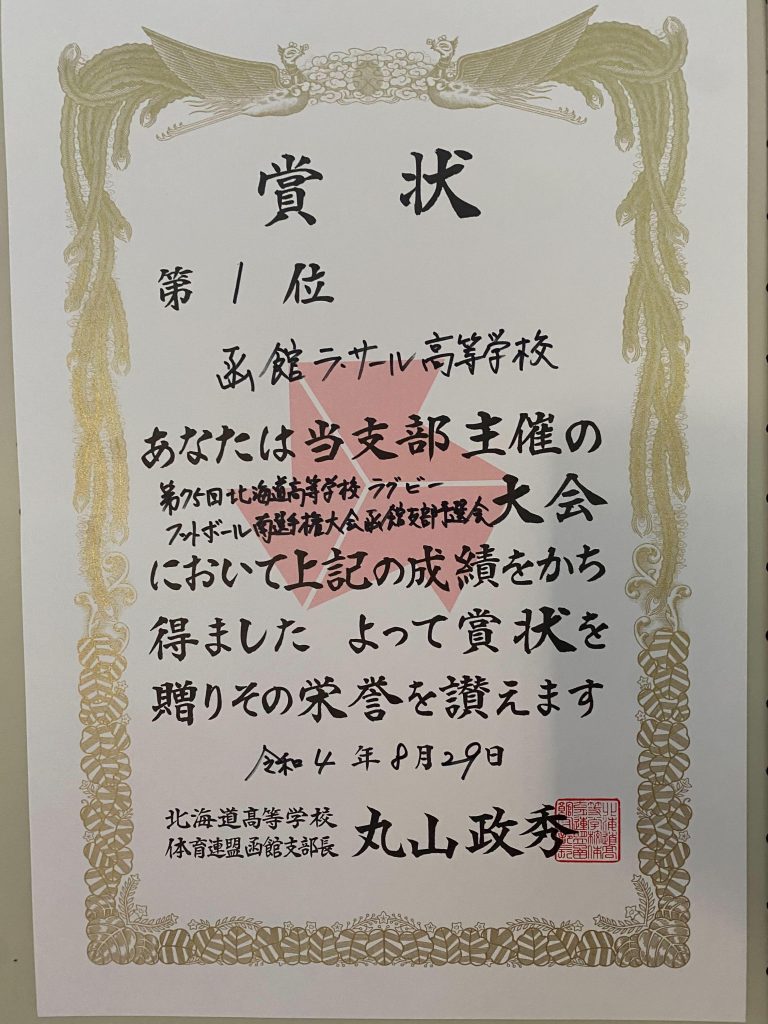 賞状
第1位
函館ラ・サール高等学校
あなたは当支部主催の
第75回北海道高等学校ラグビー
フットボール南選手権大会函館支部予選会
大会
において上記の成績をかち
得ました よって賞状を
贈りその栄誉を讃えます
令和4年8月29日
北海道高等学校
体育連盟函館支部長
丸山政秀